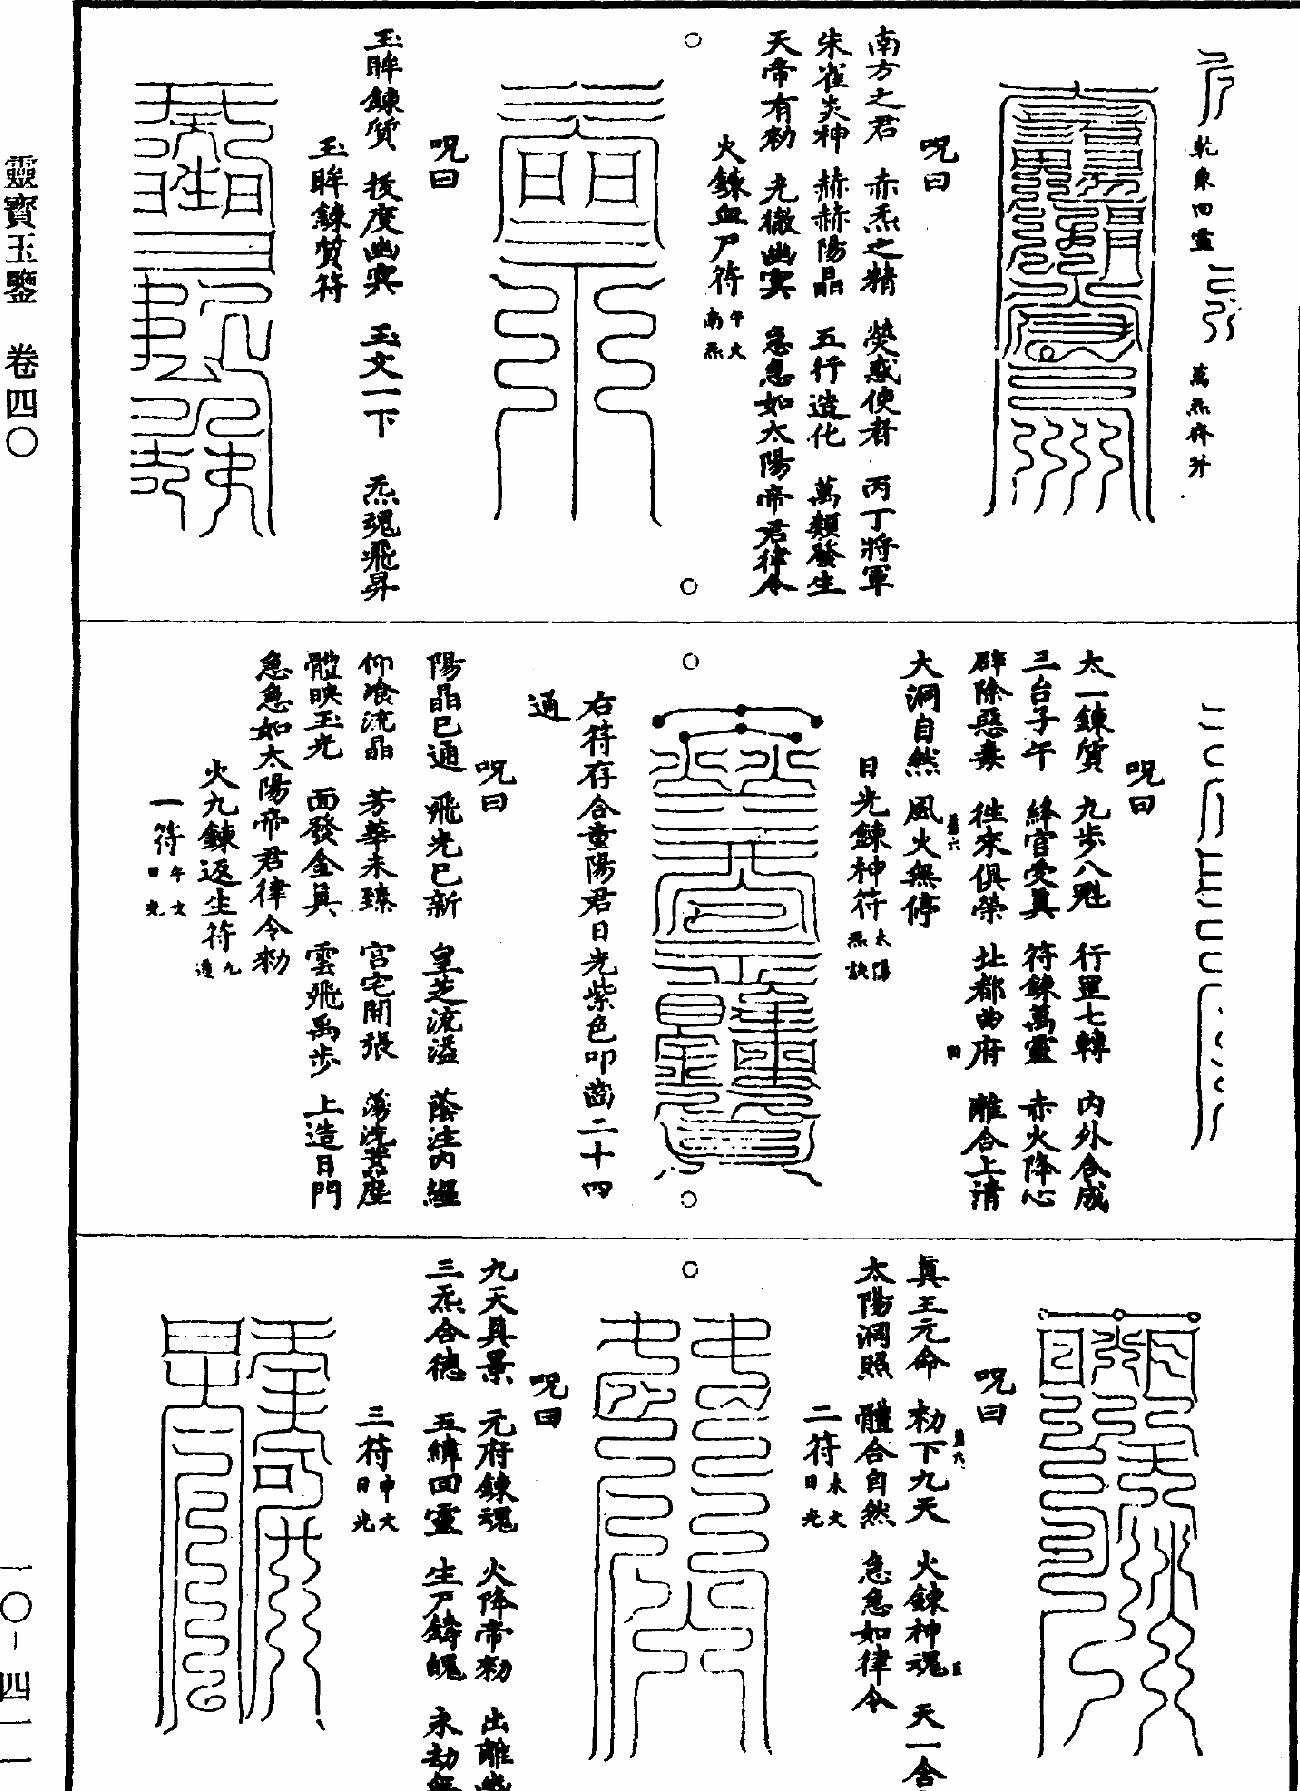 乾象回靈
萬炁齊并
呪曰
南方之君 赤炁之精 熒惑使者 丙丁將軍
朱雀炎神 赫赫陽晶 五行造化 萬類發生
天帝有勑 光徹幽冥 急急如太陽帝君律令
火鍊血尸符 午文 南炁
呪曰
玉眸鍊質 拔度幽冥 玉文一下 炁魂飛昇
玉眸鍊質符
呪曰
太一鍊質 九步八魁 行罡七轉 內外含成
三台子午 絳宮受真 符鍊萬靈 赤火降心
辟除惡毒 徃來俱榮 北都曲府 離合上清
大洞自然 風火無停
日光鍊神符 太陽 炁訣
右符存合童陽君日光紫色叩齒二十四
通
呪曰
陽晶已通 飛光已新 皇芝流溢 蔭注內經
仰飡流晶 芳華未臻 宮宅開張 蕩沈黑塵
體映玉光 面發金真 雲飛禹步 上造日門
急急如太陽帝君律令勑
火九鍊返生符 九道
一符 午文 日光
呪曰
真王元命 勑下九天 火鍊神魂 天一含
太陽洞照 體合自然 急急如律令
二符 未文 日光
呪曰
九天真景 元府鍊魂 火降帝勑 出離幽
三炁合德 五緯回靈 生尸鑄魄 永劫無
三符 申文 日光
靈寶玉鑒 卷四〇
一〇-四一一